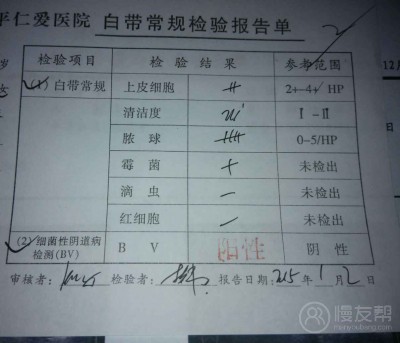 平仁爱医院 白带常规检验报告单
检验项目 检验结果 参考范围
(1)白带常规 上皮细胞 ++ 2+-4+/HP
清洁度 Ⅰ-Ⅱ
脓球 0-5/HP
霉菌 + 未检出
滴虫 - 未检出
红细胞 - 未检出
(2)细菌性阴道病检测(BV) B V 阳性 阴性
审核者: 检验者: 报告日期: 215年1月2日
12月
日
慢友帮
manyoubang.com